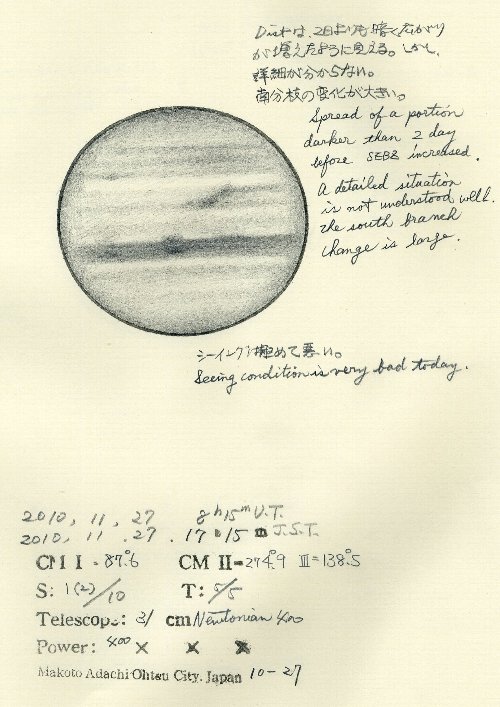 Distは、2日よりも暗く広がり
が増えたように見える。しかし、
詳細が分からない。
南分枝の変化が大きい。
Spread of a portion
darker than 2 day
before SEBZ increased.
A detailed situation
is not understood well.
the south branch
change is large.
シーイング極めて悪い。
Seeing condition is very bad today.
2010, 11, 27 8h15m U.T.
2010. 11. 27. 17h15m J.S.T.
CM I = 87°.6 CM II = 274°.9 III = 138°.5
S: 1(2)/10 T: 5/5
Telescope: 31 cm Newtonian 400
Power: 400 × × ×
Makoto Adachi Ohtsu City. Japan 10-27